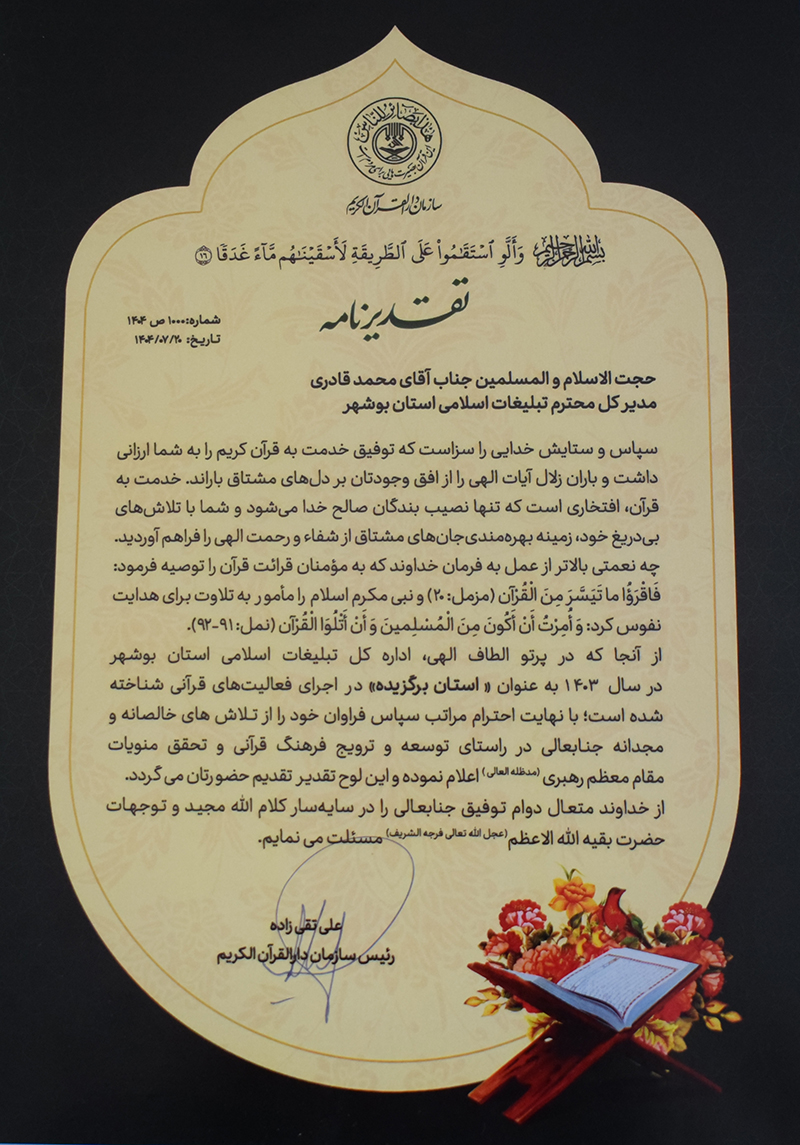 هذا بصائر للناس
این قرآن بصیرت هایی برای مردم است
سازمان دارالقرآن الکریم
بسم الله الرحمن الرحیم وَأَلَّوِ ٱسْتَقَٰمُوا۟ عَلَى ٱلطَّرِيقَةِ لَأَسْقَيْنَٰهُم مَّآءً غَدَقًا ۝١٦
تقدیرنامه
شماره:۱۰۰۰ ص ۱۴۰۴
تاریخ: ۱۴۰۴/۰۷/۲۰
حجت الاسلام و المسلمین جناب آقای محمد قادری
مدیر کل محترم تبلیغات اسلامی استان بوشهر
سپاس و ستایش خدایی را سزاست که توفیق خدمت به قرآن کریم را به شما ارزانی
داشت و باران زلال آیات الهی را از افق وجودتان بر دل‌های مشتاق باراند. خدمت به
قرآن، افتخاری است که تنها نصیب بندگان صالح خدا می‌شود و شما با تلاش‌های
بی‌دریغ خود، زمینه بهره‌مندی‌جان‌های مشتاق از شفاء و رحمت الهی را فراهم آوردید.
چه نعمتی بالاتر از عمل به فرمان خداوند که به مؤمنان قرائت قرآن را توصیه فرمود:
فَاقْرَؤُا ما تَیَسَّرَ مِنَ الْقُرْآن (مزمل: ۲۰) و نبی مکرم اسلام را مأمور به تلاوت برای هدایت
نفوس کرد: وَ أُمِرْتُ أَنْ أَکُونَ مِنَ الْمُسْلِمینَ وَ أَنْ أَتْلُوَا الْقُرْآن (نمل: ۹۱-۹۲).
از آنجا که در پرتو الطاف الهی، اداره کل تبلیغات اسلامی استان بوشهر
در سال ۱۴۰۳ به عنوان « استان برگزیده» در اجرای فعالیت‌های قرآنی شناخته
شده است؛ با نهایت احترام مراتب سپاس فراوان خود را از تلاش های خالصانه و
مجدانه جنابعالی در راستای توسعه و ترویج فرهنگ قرآنی و تحقق منویات
مقام معظم رهبری (مدظله العالی) اعلام نموده و این لوح تقدیر تقدیم حضورتان می گردد.
از خداوند متعال دوام توفیق جنابعالی را در سایه‌سار کلام الله مجید و توجهات
حضرت بقیه الله الاعظم (عجل الله تعالی فرجه الشریف) مسئلت می نمایم.
علی تقی زاده
رئیس سازمان دارالقرآن الکریم